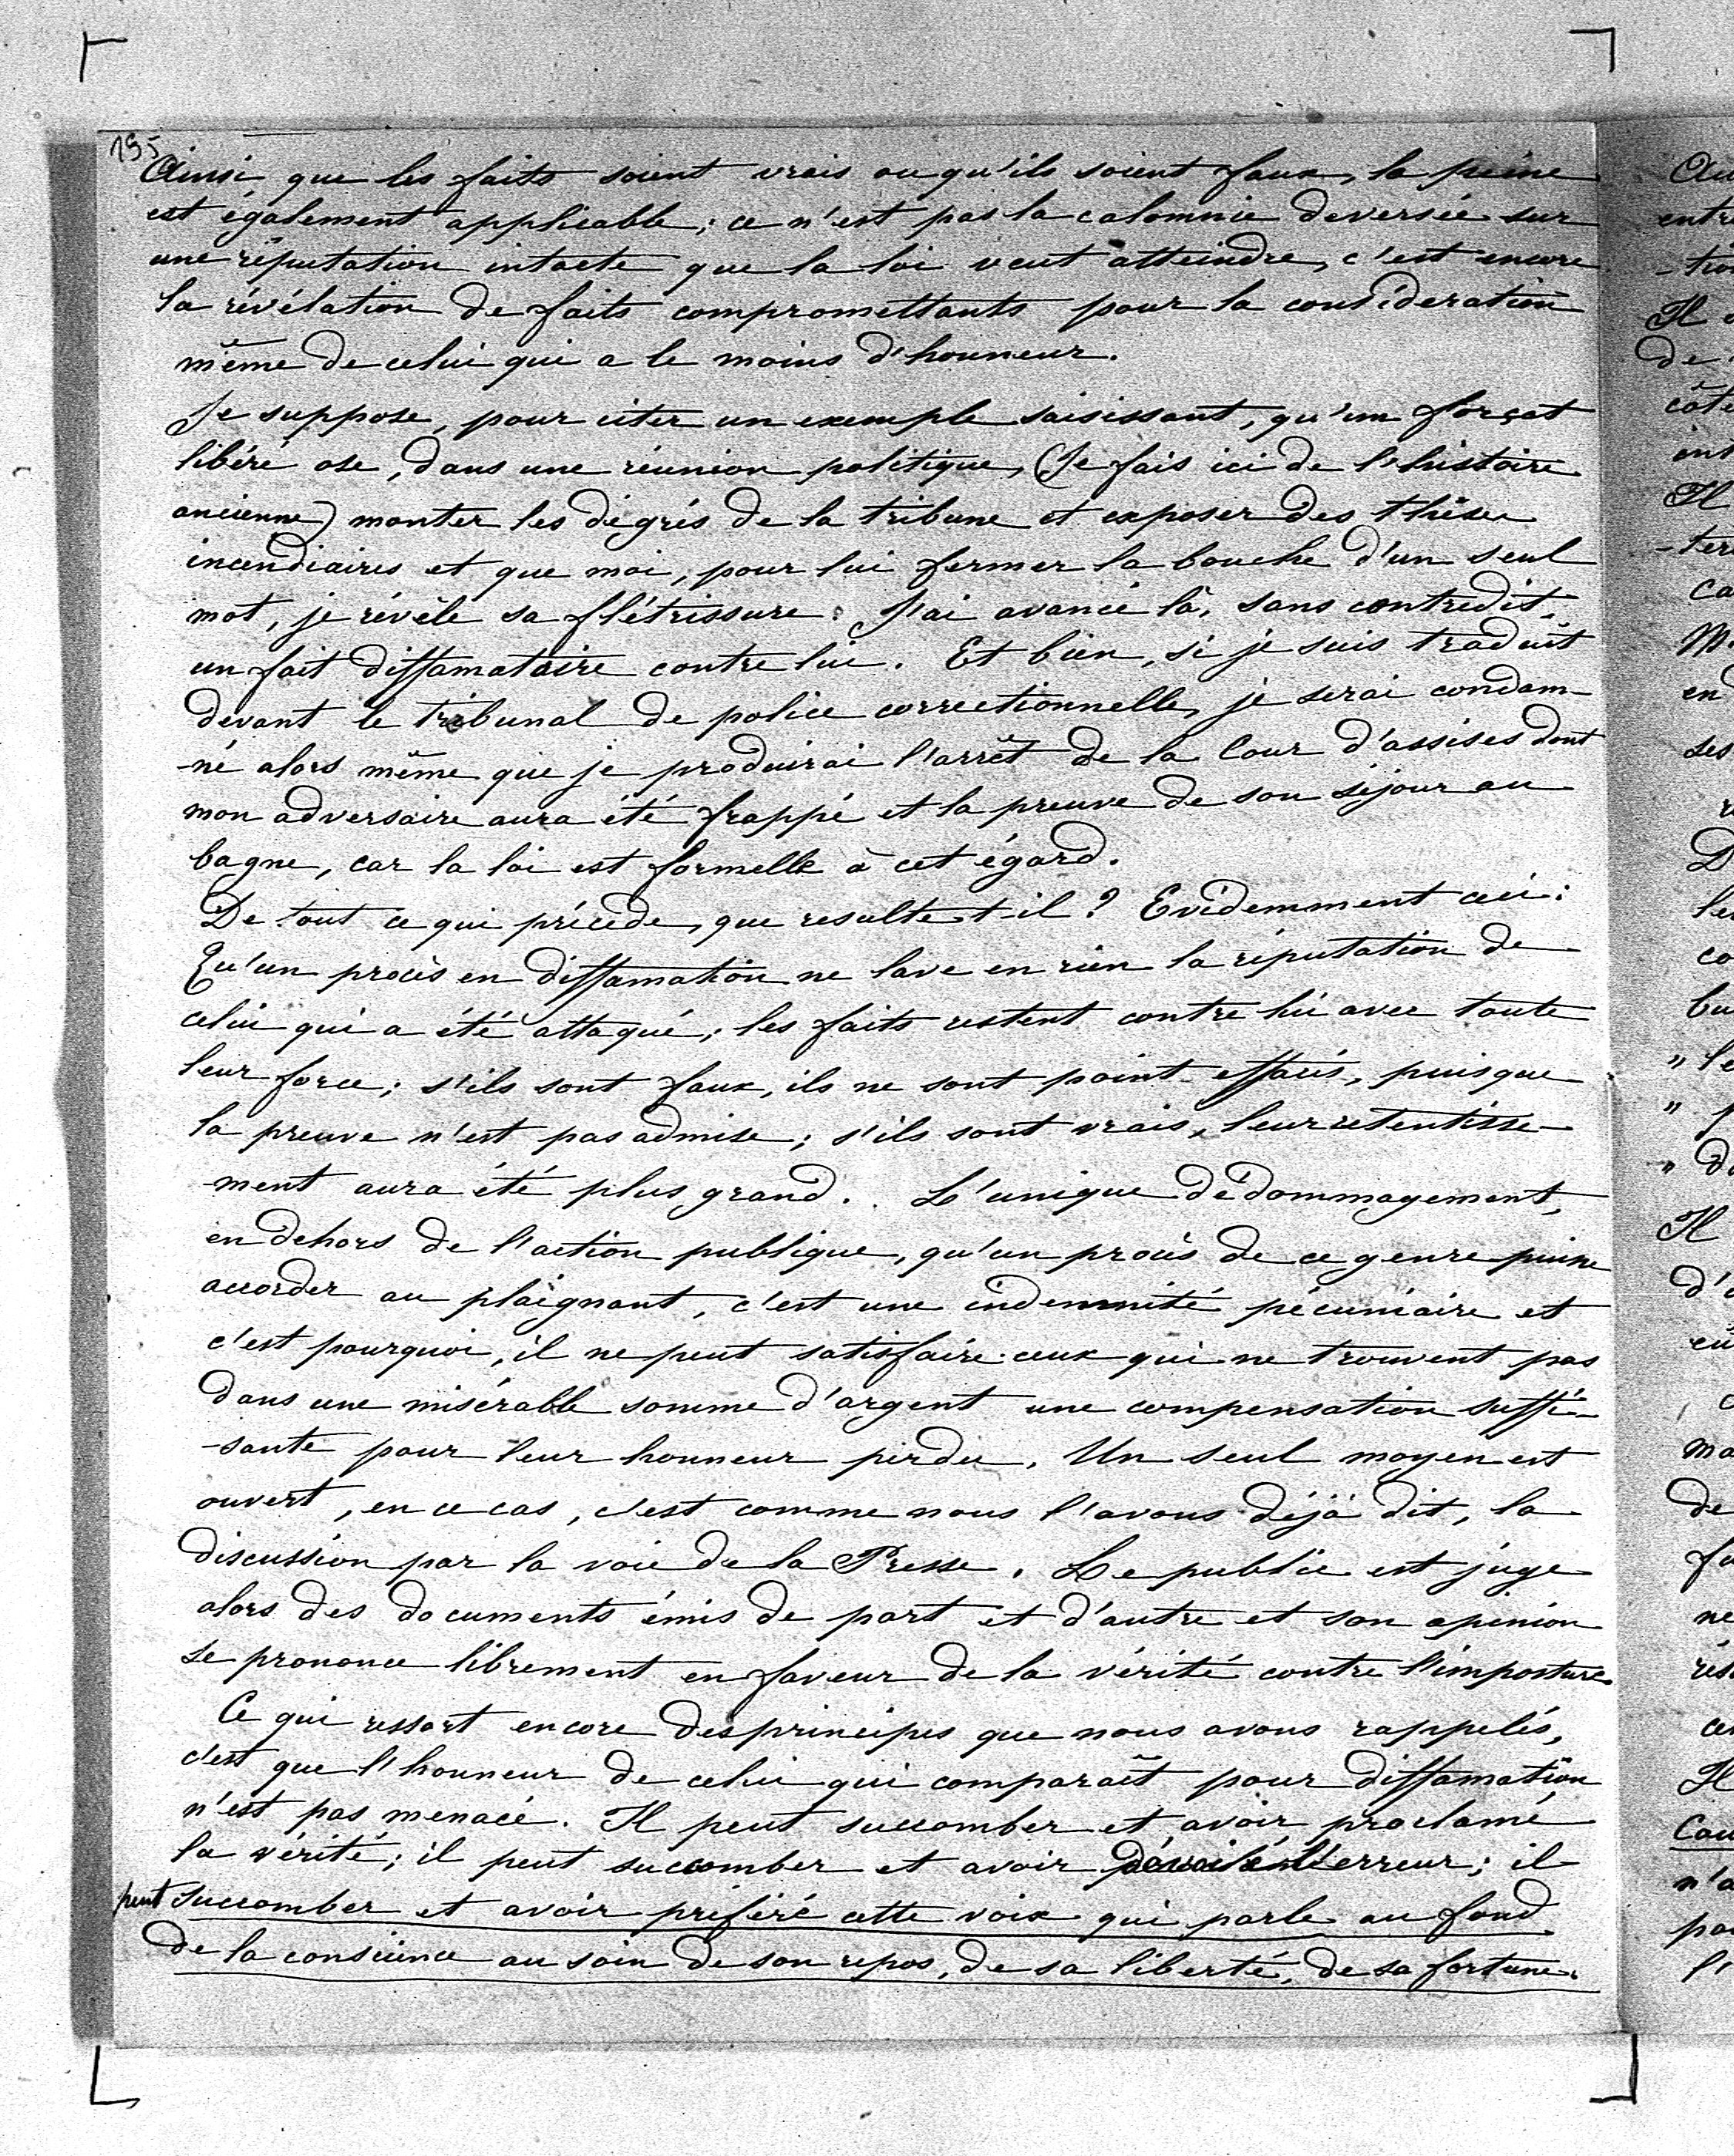 195
Ainsi, que les faits soient vrais ou qu'ils soient faux, la peine
est également applicable; ce n'est pas la calomnie deversée sur
une réputation intacte que la loi veut atteindre, c'est encore
la révélation de faits compromettants pour la considération
même de celui qui a le moins d'honneur.
Je suppose, pour citer un exemple saisissant, qu'un forçat
libéré ose, dans une réunion politique, (Je fais ici de l'histoire
ancienne) monter les dégrés de la tribune et exposer des thèses
incendiaires et que moi, pour lui fermer la bouche d'un seul
mot, je révèle sa flétrissure: J'ai avancé là, sans contredit,
un fait diffamatoire contre lui. Et bien, si je suis traduit
devant le tribunal de police correctionnelle, je serai condam-
-né alors même que je produirai l'arrêt de la Cour d'assises dont
mon adversaire aura été frappé et la preuve de son séjour au
bagne, car la loi est formelle à cet égard.
De tout ce qui précède, que resulte-t-il? Evidemment ceci:
Qu'un procès en diffamation ne lave en rien la réputation de
celui qui a été attaqué; les faits restent contre lui avec toute
leur force; s'ils sont faux, ils ne sont point effacés, puisque
la preuve n'est pas admise; s'ils sont vrais, leur retentisse-
-ment aura été plus grand. L'unique dédommagement,
en dehors de l'action publique, qu'un procès de ce genre puisse
accorder au plaignant, c'est une indemnité pécuniaire et
c'est pourquoi, il ne peut satisfaire ceux qui ne trouvent pas
dans une misérable somme d'argent une compensation suffi-
-sante pour leur honneur perdu. Un seul moyen est
ouvert, en ce cas, c'est comme nous l'avons déjà dit, la
discussion par la voie de la Presse. Le public est juge
alors des documents émis de part et d'autre et son opinion
se prononce librement en faveur de la vérité contre l'imposture.
Ce qui ressort encore des principes que nous avons rappelés,
c'est que l'honneur de celui qui comparaît pour diffamation
n'est pas menacé. Il peut succomber et avoir proclamé
la vérité; il peut succomber et avoir dévoilé l'erreur; il
peut succomber et avoir préféré cette voix qui parle au fond
de la conscience au soin de son repos, de sa liberté, de sa fortune.